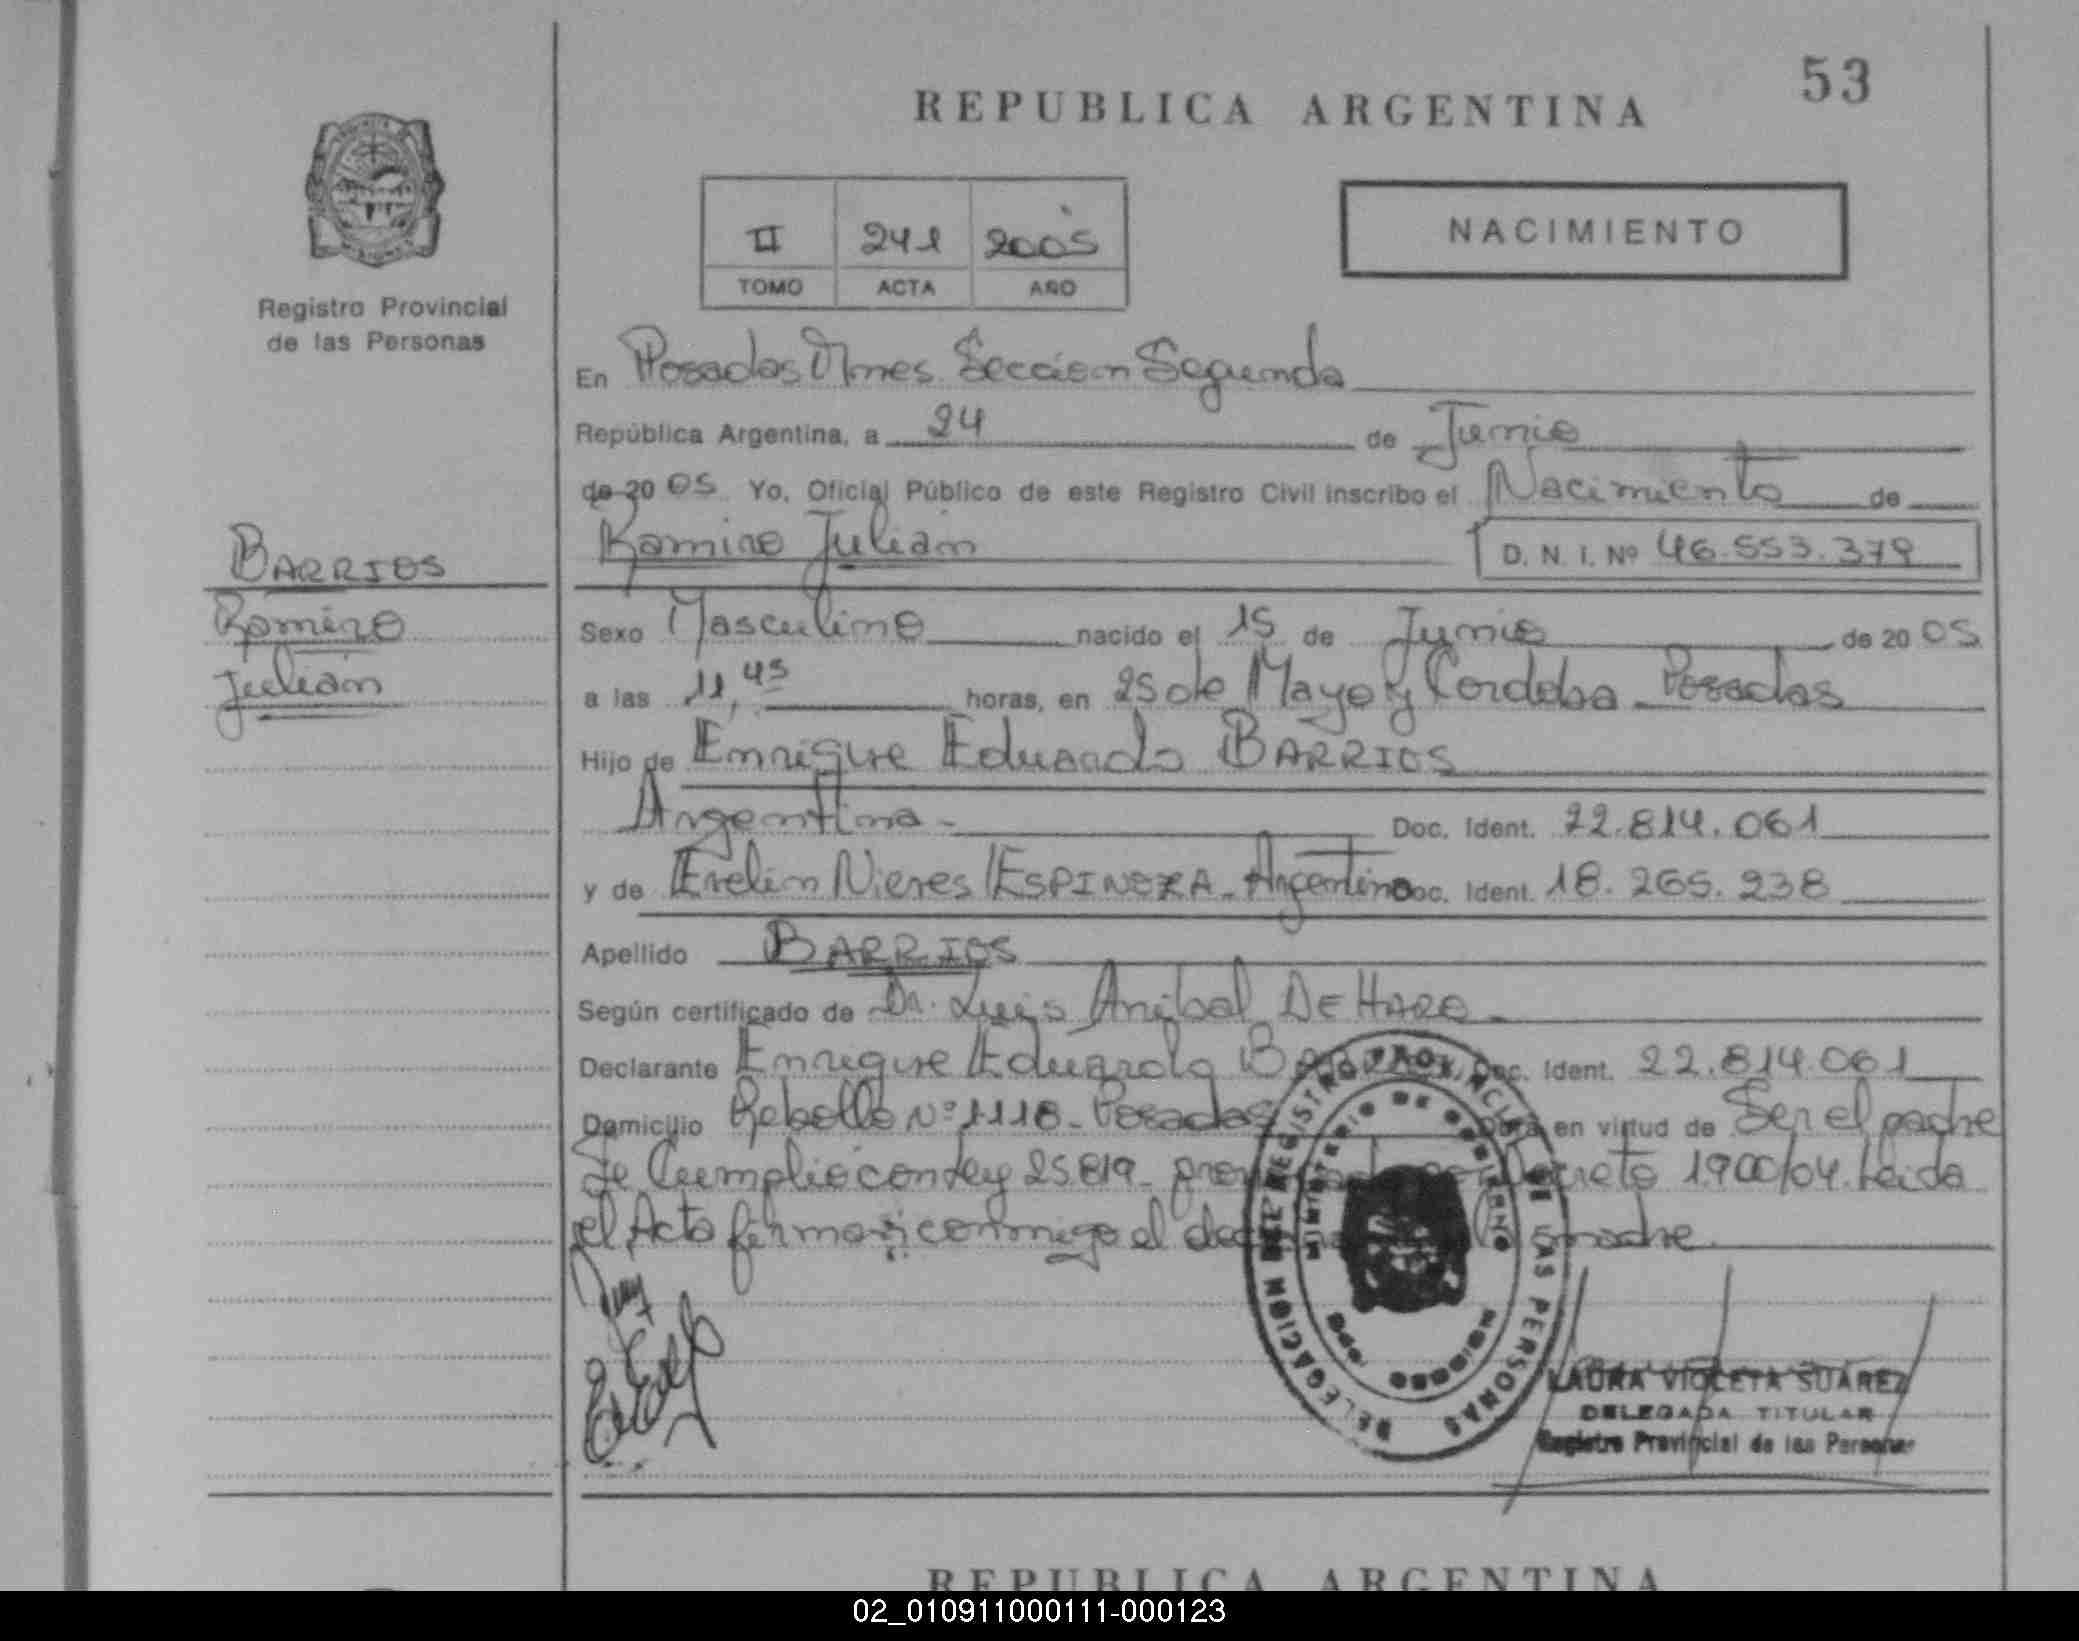 53
REPUBLICA ARGENTINA
II 241 2005
TOMO ACTA AÑO
NACIMIENTO
Registro Provincial
de las Personas
En Posadas Mnes. Sección Segunda
República Argentina, a 24 de Junio
de 2005 Yo, Oficial Público de este Registro Civil inscribo el Nacimiento de
Ramiro Julián D. N. I. Nº 46.553.379
BARRIOS
Ramiro
Julián
Sexo Masculino nacido el 15 de Junio de 2005
a las 11,45 horas, en 25 de Mayo y Cordoba - Posadas
Hijo de Enrique Eduardo BARRIOS
Argentino - Doc. Ident. 22.814.061
y de Evelin Nieves ESPINOZA - Argentina Doc. Ident. 18.265.238
Apellido BARRIOS
Según certificado de Dr. Luis Anibal DE HARO -
Declarante Enrique Eduardo BARRIOS Doc. Ident. 22.814.061
Domicilio Rebollo Nº 1118 - Posadas Obra en virtud de Ser el padre
Se Cumplió con Ley 25819 - Decreto 1900/04. Leida
el Acta firman conmigo el madre
DELEGACION REGISTRO PROVINCIAL DE LAS PERSONAS
MINISTERIO DE GOBIERNO
LAURA VIOLETA SUAREZ
DELEGADA TITULAR
Registro Provincial de las Personas
REPUBLICA ARGENTINA
02_010911000111-000123